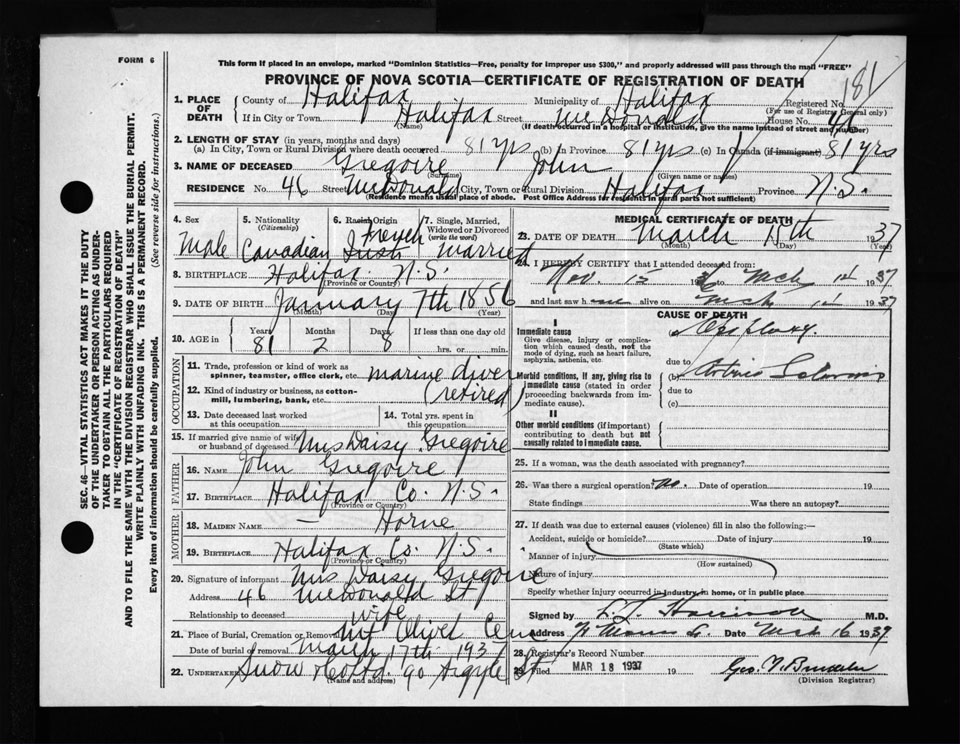 FORM 6
This form if placed in an envelope, marked "Dominion Statistics—Free, penalty for improper use $300," and properly addressed will pass through the mail "FREE"
PROVINCE OF NOVA SCOTIA—CERTIFICATE OF REGISTRATION OF DEATH
181
1. PLACE OF DEATH County of Halifax Municipality of Halifax Registered No.
(For use of Registrar General only)
If in City or Town Halifax Street McDonald House No. 46
(Name) (If death occurred in a hospital or institution, give the name instead of street and number)
2. LENGTH OF STAY (in years, months and days)
(a) In City, Town or Rural Division where death occurred 81 yrs (b) In Province 81 yrs (c) In Canada (if immigrant) 81 yrs
3. NAME OF DECEASED Gregoire John
(Surname) (Given name or names)
RESIDENCE No. 46 Street McDonald City, Town or Rural Division Halifax Province N.S.
(Residence means usual place of abode. Post Office Address for residents in rural parts not sufficient)
4. Sex Male
5. Nationality (Citizenship) Canadian
6. Racial Origin French Irish
7. Single, Married, Widowed or Divorced (write the word) Married
8. BIRTHPLACE Halifax N.S.
(Province or Country)
9. DATE OF BIRTH January 7th 1856
(Month) (Day) (Year)
10. AGE in Years 81 Months 2 Days 8 If less than one day old hrs. or min.
OCCUPATION
11. Trade, profession or kind of work as spinner, teamster, office clerk, etc. marine diver
12. Kind of industry or business, as cotton-mill, lumbering, bank, etc. (retired)
13. Date deceased last worked at this occupation
14. Total yrs. spent in this occupation
15. If married give name of wife or husband of deceased Mrs Daisy Gregoire
FATHER
16. NAME John Gregoire
17. BIRTHPLACE Halifax Co. N.S.
(Province or Country)
MOTHER
18. MAIDEN NAME — Horne
19. BIRTHPLACE Halifax Co. N.S.
(Province or Country)
20. Signature of informant Mrs Daisy Gregoire
Address 46 McDonald St
Relationship to deceased wife
21. Place of Burial, Cremation or Removal Mt Olivet Cem
Date of burial or removal March 17th 1937
22. UNDERTAKER Snow & Co Ltd. 90 Argyle St
(Name and address)
MEDICAL CERTIFICATE OF DEATH
23. DATE OF DEATH March 15th 1937
(Month) (Day) (Year)
24. I HEREBY CERTIFY that I attended deceased from:
Nov. 15 36 to Mch 14 1937
and last saw h im alive on Mch 14 1937
CAUSE OF DEATH
I
Immediate cause
Give disease, injury or complication which caused death, not the mode of dying, such as heart failure, asphyxia, asthenia, etc.
Apoplexy.
due to
Morbid conditions, if any, giving rise to immediate cause (stated in order proceeding backwards from immediate cause).
(b) Arterio Sclerosis
due to
(c)
II
Other morbid conditions (if important) contributing to death but not causally related to immediate cause.
25. If a woman, was the death associated with pregnancy?
26. Was there a surgical operation? No. Date of operation 19
State findings Was there an autopsy?
27. If death was due to external causes (violence) fill in also the following:—
Accident, suicide or homicide? Date of injury 19
(State which)
Manner of injury
(How sustained)
Nature of injury
Specify whether injury occurred in Industry, in home, or in public place
Signed by M.D.
Address Date Mch 16 1937
28. Registrar's Record Number
29. Filed MAR 18 1937 19
(Division Registrar)
SEC. 46—VITAL STATISTICS ACT MAKES IT THE DUTY
OF THE UNDERTAKER OR PERSON ACTING AS UNDER-
TAKER TO OBTAIN ALL THE PARTICULARS REQUIRED
IN THE "CERTIFICATE OF REGISTRATION OF DEATH"
AND TO FILE THE SAME WITH THE DIVISION REGISTRAR WHO SHALL ISSUE THE BURIAL PERMIT.
WRITE PLAINLY WITH UNFADING INK. THIS IS A PERMANENT RECORD.
Every item of information should be carefully supplied. (See reverse side for instructions.)